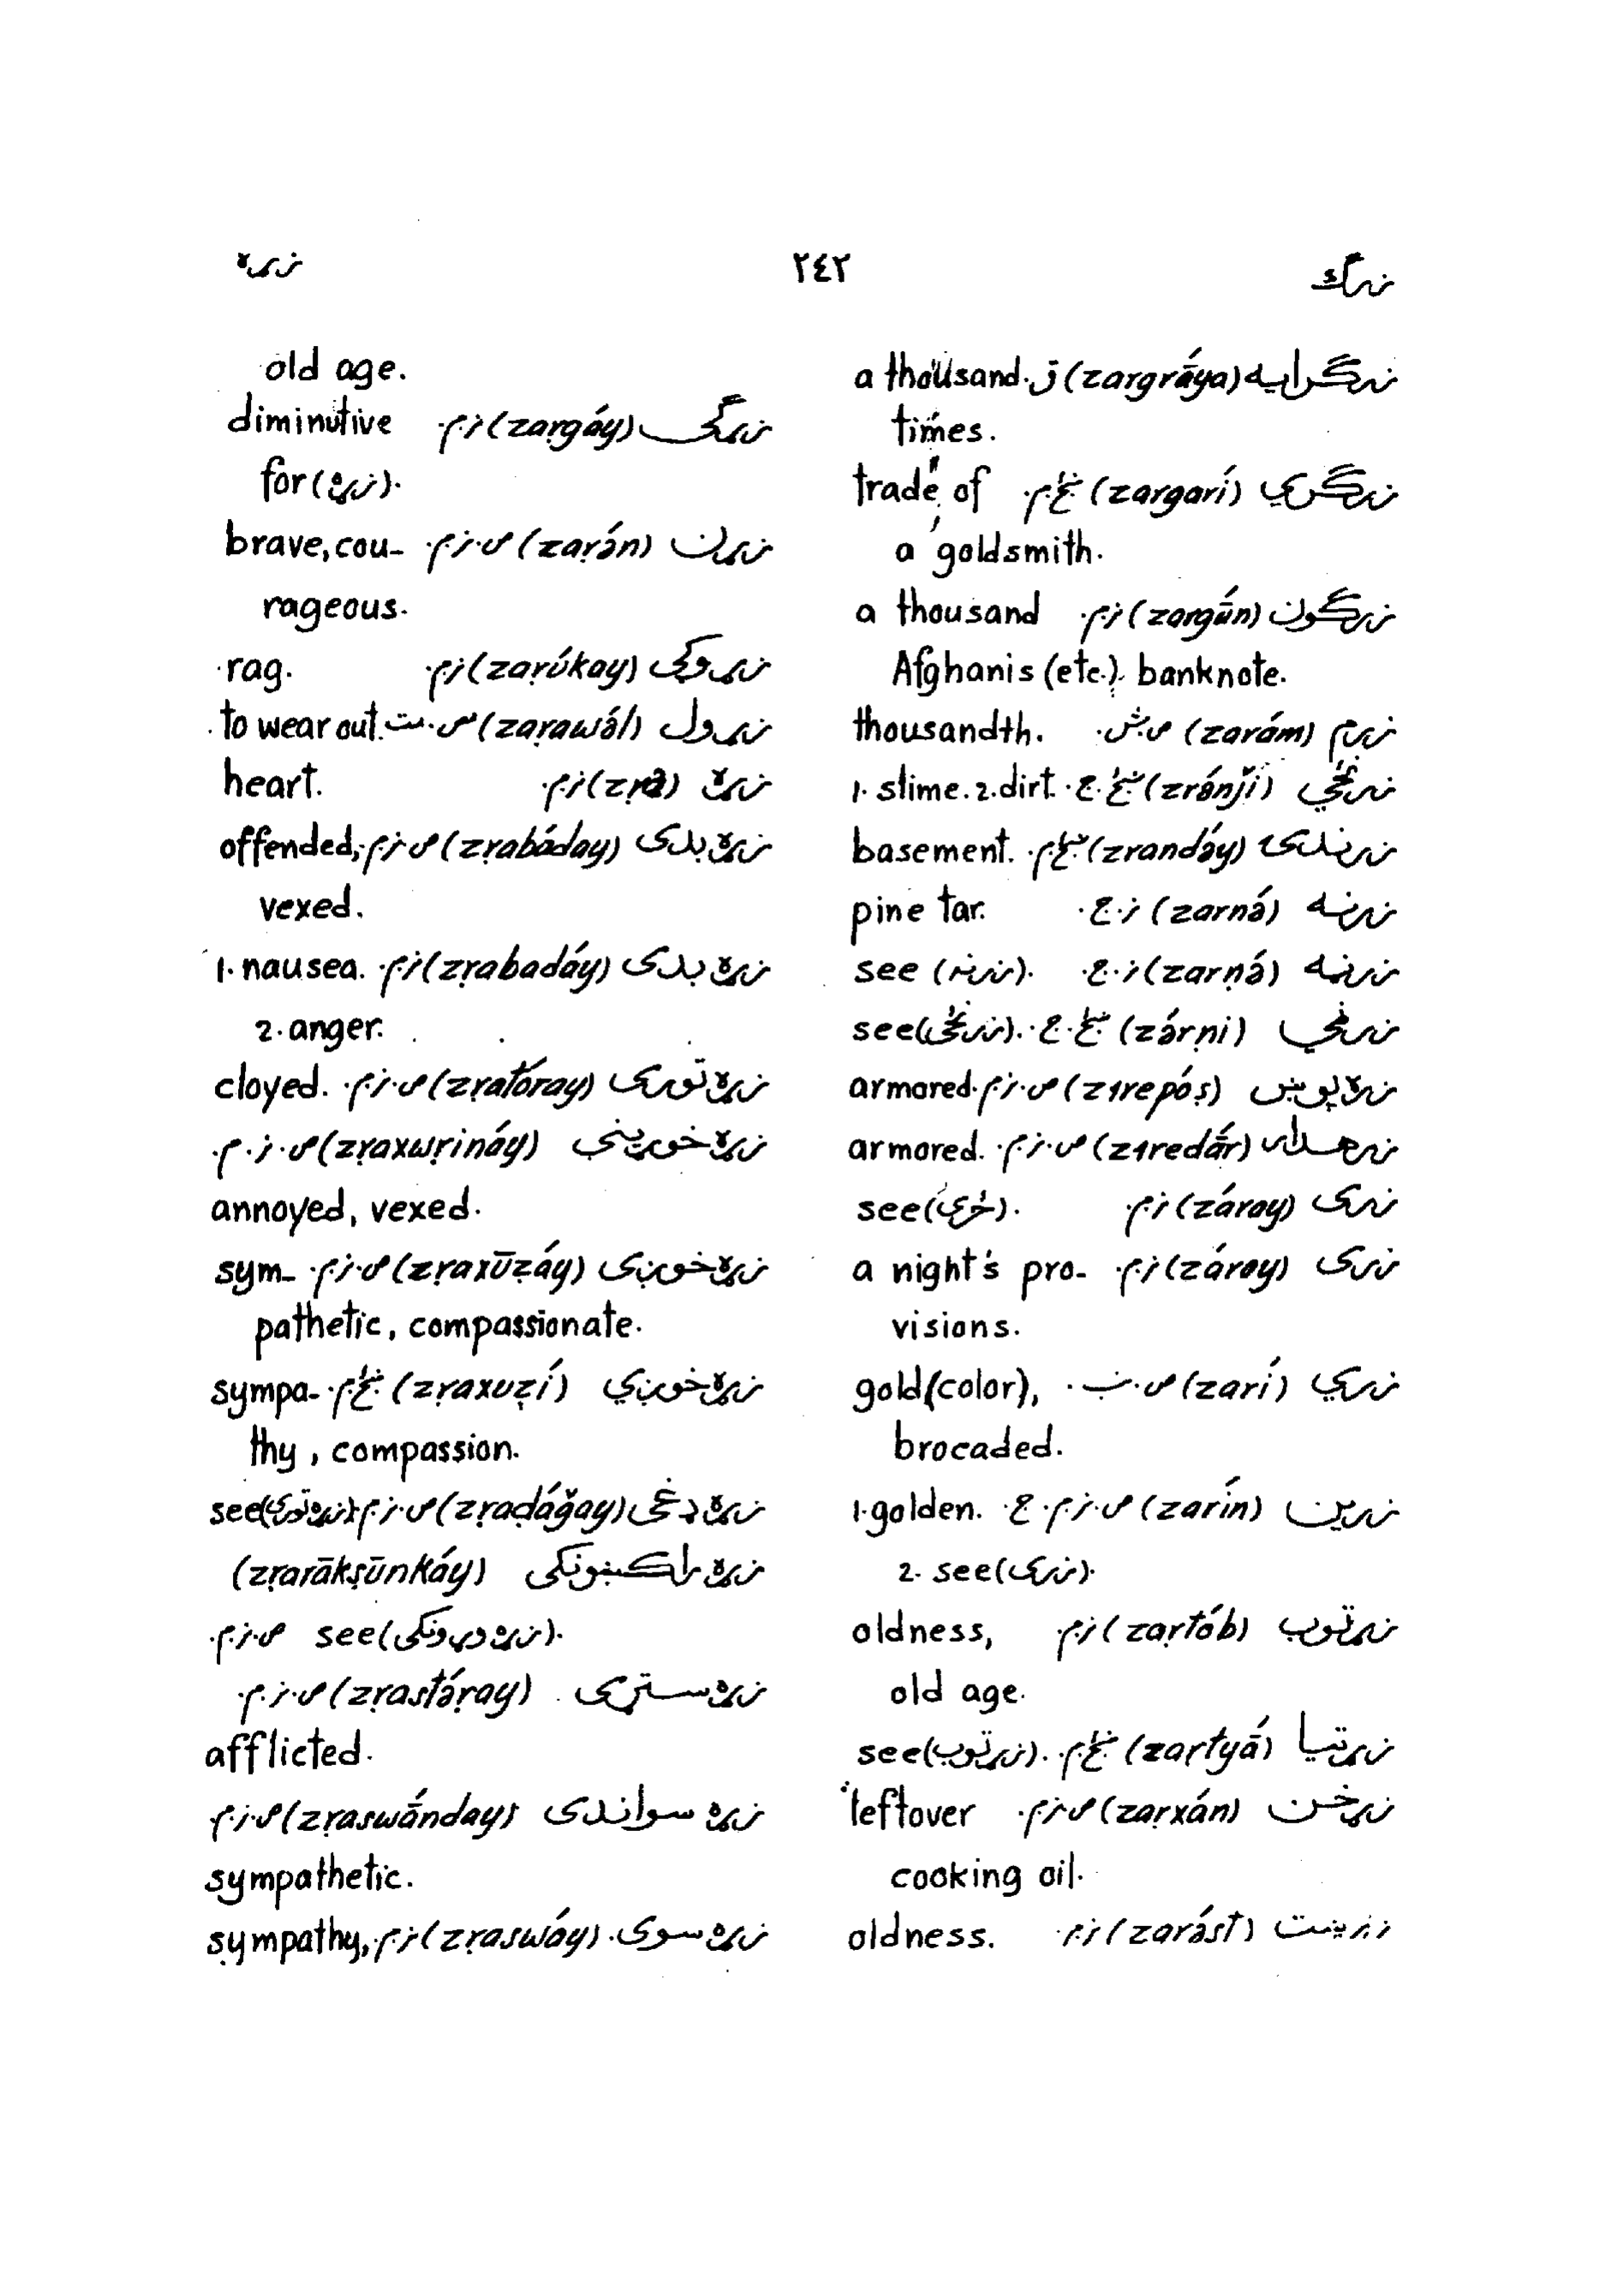 زرګ ٢٤٢ زړه
زرګرایه (zargrā́ya) ق. a thousand
times.
زرګري (zargarí) ښځ.م. trade of
a goldsmith.
زرګون (zargū́n) نر.م. a thousand
Afghanis (etc.) banknote.
زرم (zarә́m) ص.ش. thousandth.
زرنجي (zrә́nǰi) ښځ.ج. 1. slime. 2. dirt.
زرندۍ (zrandә́y) ښځ.م. basement.
زرنه (zarná) نر.ج. pine tar.
زرڼه (zarṇá) نر.ج. see (زرنه).
زرڼي (zә́rṇi) ښځ.ج. see (زرنجي).
زره‌پوښ (zɪrepóṣ) ص.نر.م. armored.
زره‌دار (zɪredā́r) ص.نر.م. armored.
زری (zә́ray) نر.م. see
زری (záray) نر.م. a night's pro-
visions.
زري (zarí) ص.ب. gold (color),
brocaded.
زرین (zarín) ص.نر.م.ج. 1. golden.
2. see (زری).
زړتوب (zaṛtób) نر.م. oldness,
old age.
زړتیا (zaṛtyā́) ښځ.م. see (زړتوب).
زړخن (zaṛxán) ص.نر.م. leftover
cooking oil.
(zaṛást) نر.م. oldness.
old age.
زړګی (zaṛgáy) نر.م. diminutive
for (زړه).
زړن (zaṛә́n) ص.نر.م. brave, cou-
rageous.
زړوکی (zaṛúkay) نر.م. rag.
زړول (zaṛawә́l) مص.ت. to wear out.
زړه (zṛә) نر.م. heart.
زړه‌بدی (zṛabáday) ص.نر.م. offended,
vexed.
زړه‌بدی (zṛabadáy) نر.م. 1. nausea.
2. anger.
زړه‌توری (zṛatóray) ص.نر.م. cloyed.
زړه‌خوړینی (zṛaxwṛináy) ص.نر.م.
annoyed, vexed.
زړه‌خوږی (zṛaxūẓáy) ص.نر.م. sym-
pathetic, compassionate.
زړه‌خوږي (zṛaxuẓí) ښځ.م. sympa-
thy, compassion.
زړه‌دغی (zṛaḍáğay) ص.نر.م. see (زړه‌توری).
زړه‌راکښونکی (zṛarākṣūnkáy)
ص.نر.م. see (زړه‌وړونکی).
زړه‌ستړی (zṛastә́ṛay) ص.نر.م.
afflicted.
زړه‌سواندی (zṛaswā́nday) ص.نر.م.
sympathetic.
زړه‌سوی (zṛaswáy) نر.م. sympathy,